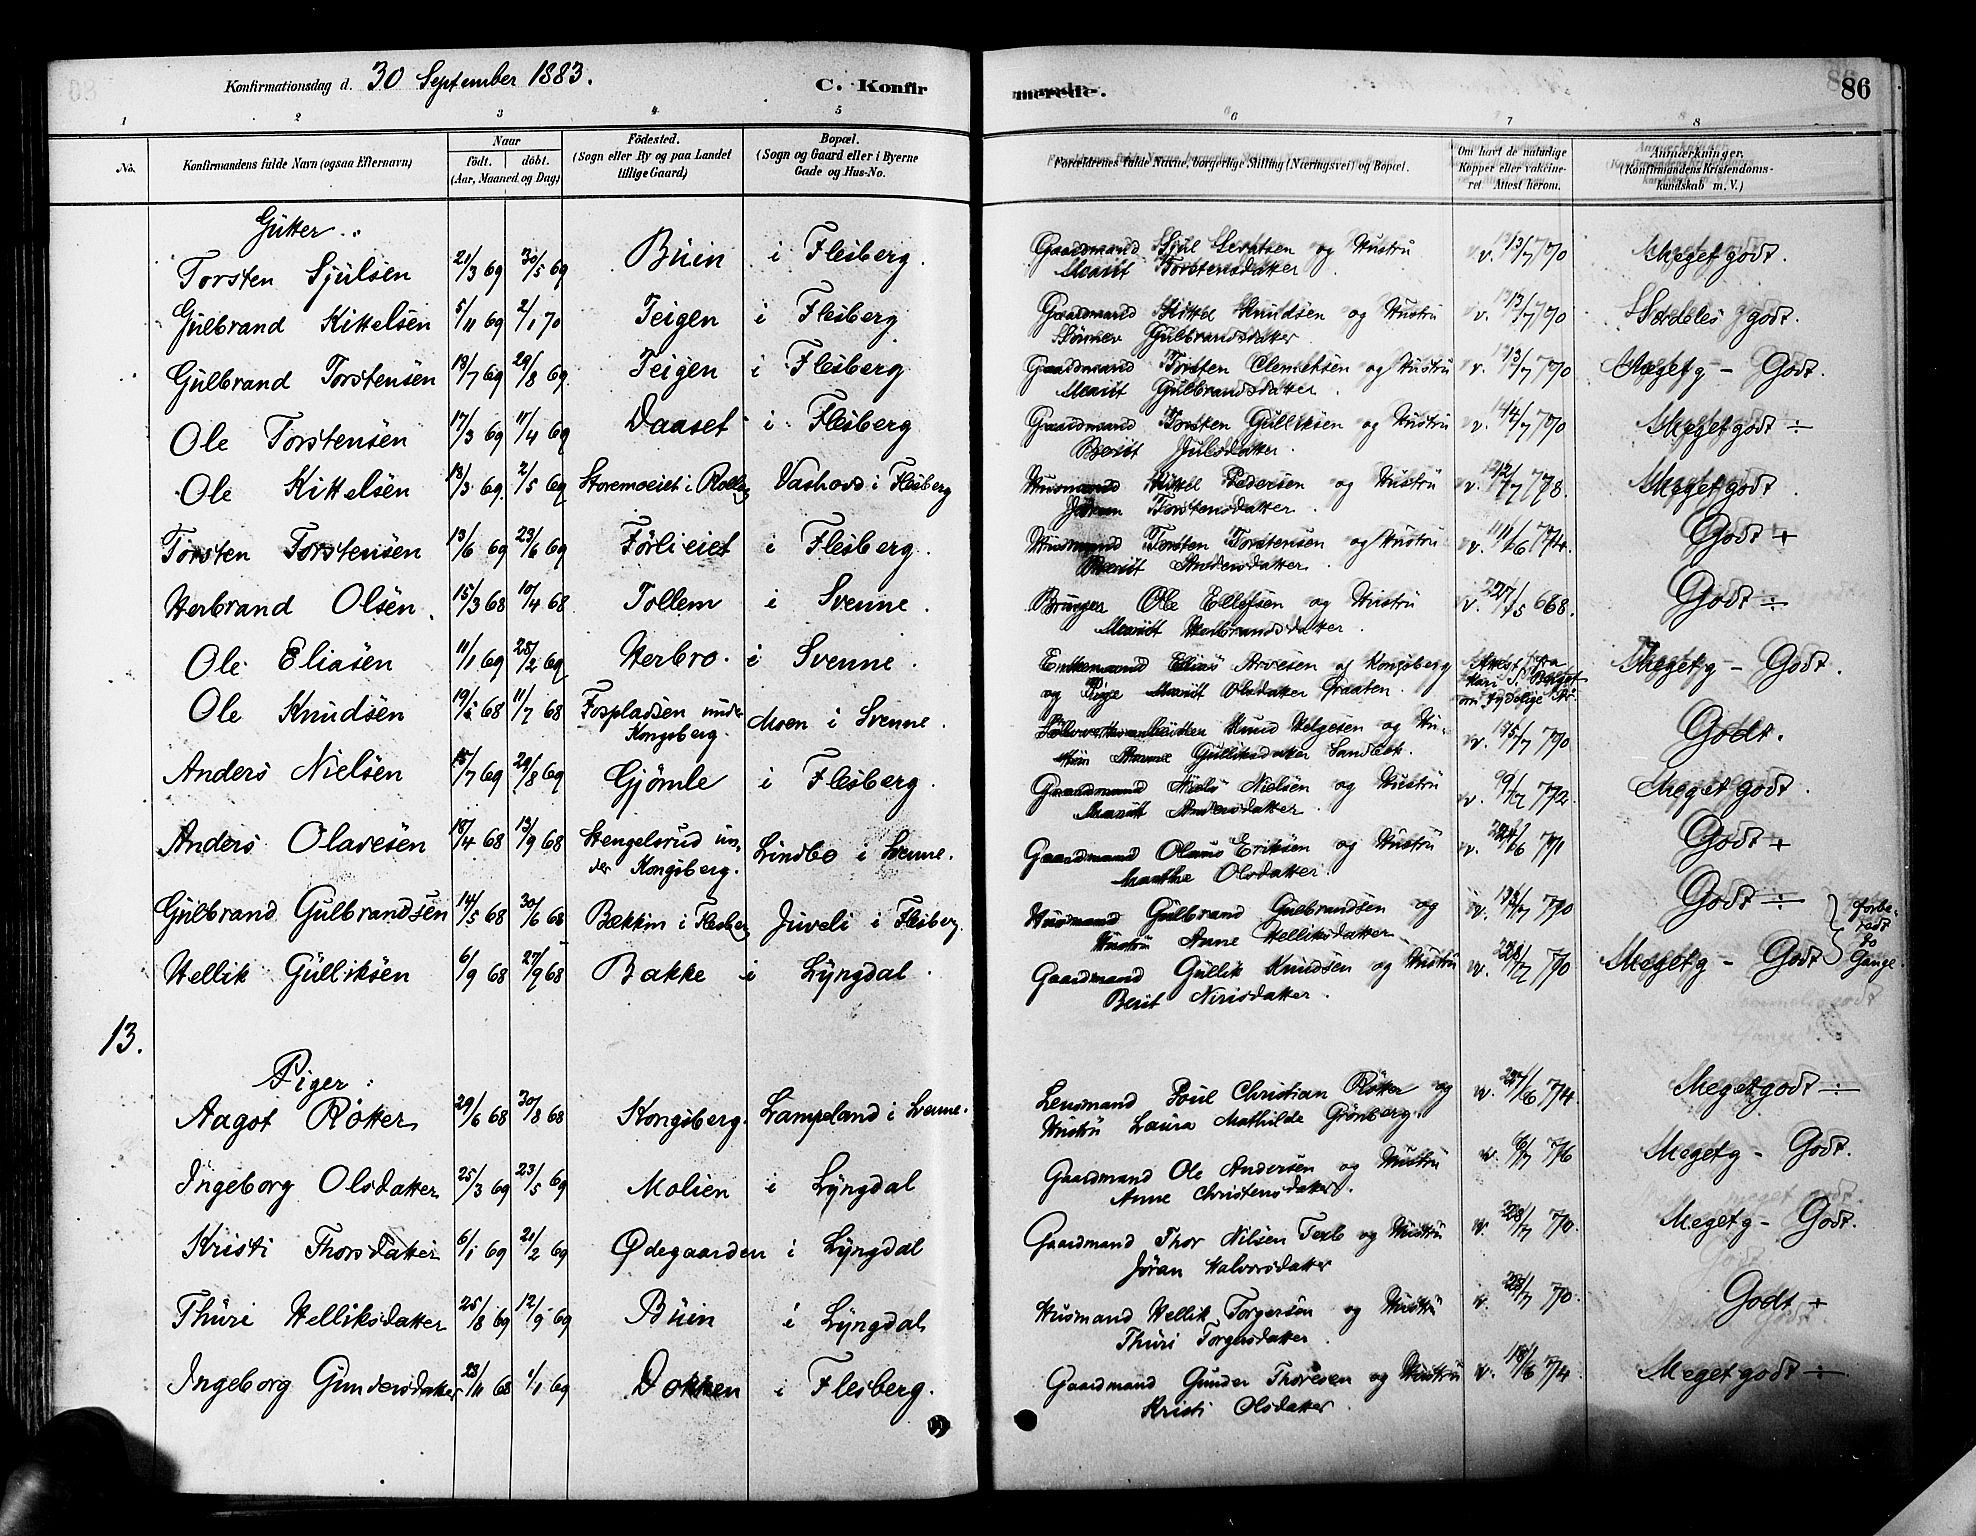 Konfirmationsdag d. 30 September 1883. C. Konfirmerede. 86
1 2 3 4 5 6 7 8
No. Konfirmandens fulde Navn (ogsaa Efternavn) Naar født. døbt. (Aar, Maaned og Dag) Fødested. (Sogn eller By og paa Landet tillige Gaard) Bopæl. (Sogn og Gaard eller i Byerne Gade og Hus-No. Forældrenes fulde Navne, borgerlige Stilling (Næringsvei) og Bopæl. Om havt de naturlige Kopper eller vaccineret. Attest herom. Anmærkninger. (Konfirmandens Kristendomskundskab m. V.)
Gutter:
Torsten Sjulsen 21/3 69 30/5 69 Buin i Flesberg. Gaardmand og Hustru v. 13/7 70 Meget godt.
Marit Torstensdatter.
Gulbrand Kittelsen 5/11 69 2/1 70 Teigen i Flesberg Gaardmand Kittel Knudsen og Hustru v. 13/7 70 Særdeles godt.
Gulbrandsdatter
Gulbrand Torstensen 19/7 69 29/8 69 Teigen i Flesberg Gaardmand Torsten Clemetsen og Hustru v. 13/7 70 Meget g - Godt.
Marit Gulbrandsdatter.
Ole Torstensen 17/3 69 11/4 69 Daaset i Flesberg Gaardmand Torsten Gulliksen og Hustru v. 14/7 70 Meget godt ÷
Berit Julsdatter.
Ole Kittelsen 18/3 69 2/5 69 Storemoeiet i Rollag Vashovd i Flesberg Husmand Kittel Pedersen og Hustru v. 12/7 78. Meget godt.
Jøran Torstensdatter.
Torsten Torstensen 13/6 69 23/6 69 Førlieiet i Flesberg. Husmand Torsten Torstensen og Hustru v. 11/6 74. Godt +
Berit Andersdatter.
Herbrand Olsen. 15/3 68 10/4 68 Tollem i Svenne. Bruger Ole Ellefsen og Hustru v. 27/5 68. Godt ÷
Marit Herbrandsdatter.
Ole Eliasen 11/1 69 28/2 69 Herbro. i Svenne. Enkemand Elias Arvesen af Kongsberg Attest fra Meget g - Godt.
og Pige Marit Olsdatter Graaten.
Ole Knudsen 11/7 68 Fospladsen under Kongsberg. Moen i Svenne. Knud Helgesen og Hustru v. 15/7 70 Godt.
Anne Gulliksdatter
Anders Nielsen 15/7 69 29/8 69 Gjømle i Flesberg. Gaardmand Niels Nielsen og Hustru v. 9/12 72. Meget godt.
Marit Andersdatter.
Anders Olavesen 18/4 68 13/9 68 Stengelsrud under Kongsberg. Lindbo i Svenne. Gaardmand Olaves Eriksen og Hustru v. 24/6 71 Godt +
Marthe Olsdatter.
Gulbrand Gulbrandsen 14/5 68 30/6 68 Bekkim i Flesberg Juveli i Flesberg. Husmand Gulbrand Gulbrandsen og v. 13/7 70 Godt ÷
Hustru Anne Helliksdatter
Hellik Gulliksen 6/9 68 27/9 68 Bakke i Lyngdal. Gaardmand Gullik Knudsen og Hustru v. 28/7 70 Meget g - Godt
Berit Nirisdatter. forberedt to Gange.
13.
Piger:
Aagot Røtter 29/6 68 30/8 68 Kongsberg. Lampeland i Svenne. Lensmand Poul Christian Røtter og v. 27/6 74 Meget godt ÷
Hustru Laura Mathilde Grønberg.
Ingeborg Olsdatter 25/3 69 23/5 69 Molien i Lyngdal Gaardmand Ole Andersen og Hustru v. 6/7 76 Meget g - Godt.
Anne Christensdatter.
Kristi Thorsdatter 6/1 69 21/2 69 Ødegaarden i Lyngdal Gaardmand Thor Nilsen og Hustru v. 28/7 70. Meget g - Godt.
Jøran Halvorsdatter
Thuri Helliksdatter 25/8 69 12/9 69 Buin i Lyngdal Husmand Hellik Torgersen og Hustru v. 28/7 70. Godt +
Thuri Torgersdatter.
Ingeborg Gundersdatter 23/11 68 1/1 69 Dokken i Flesberg. Gaardmand Gunder Thoresen og Hustru v. 18/6 74 Meget godt ÷
Kristi Olsdatter.